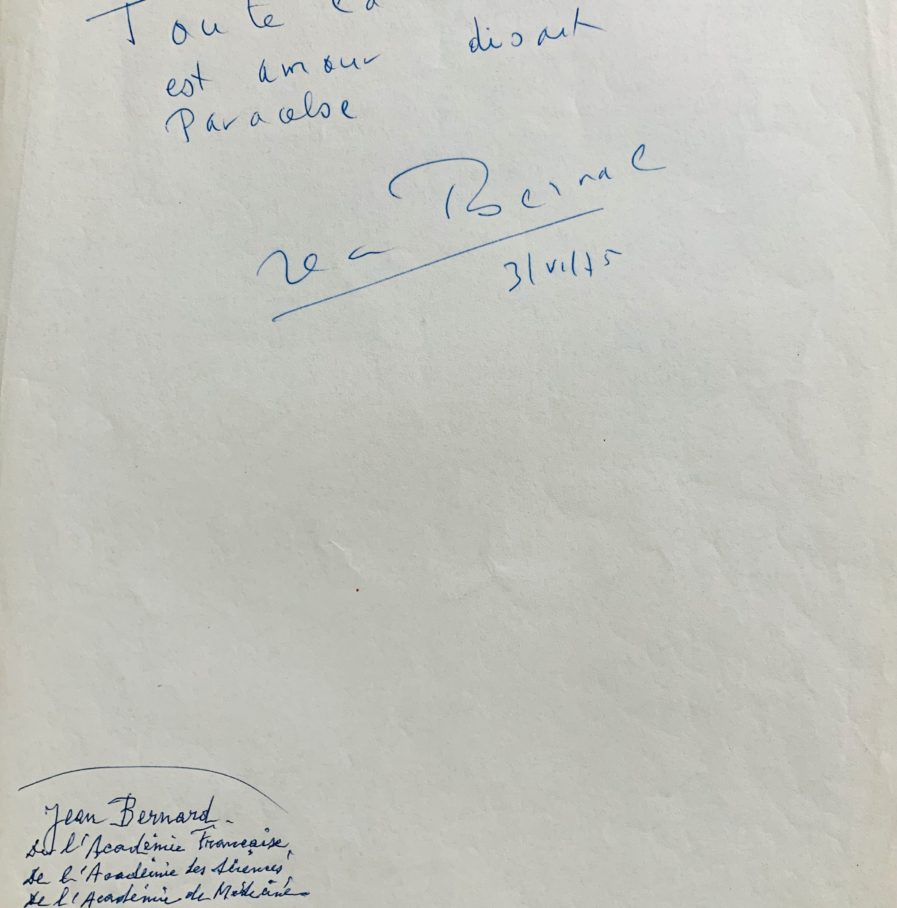 Toute
est amour disait
Paracelse
Jean Bernard
3/VI/75
Jean Bernard.
de l'Académie Française,
de l'Académie des Sciences,
de l'Académie de Médecine